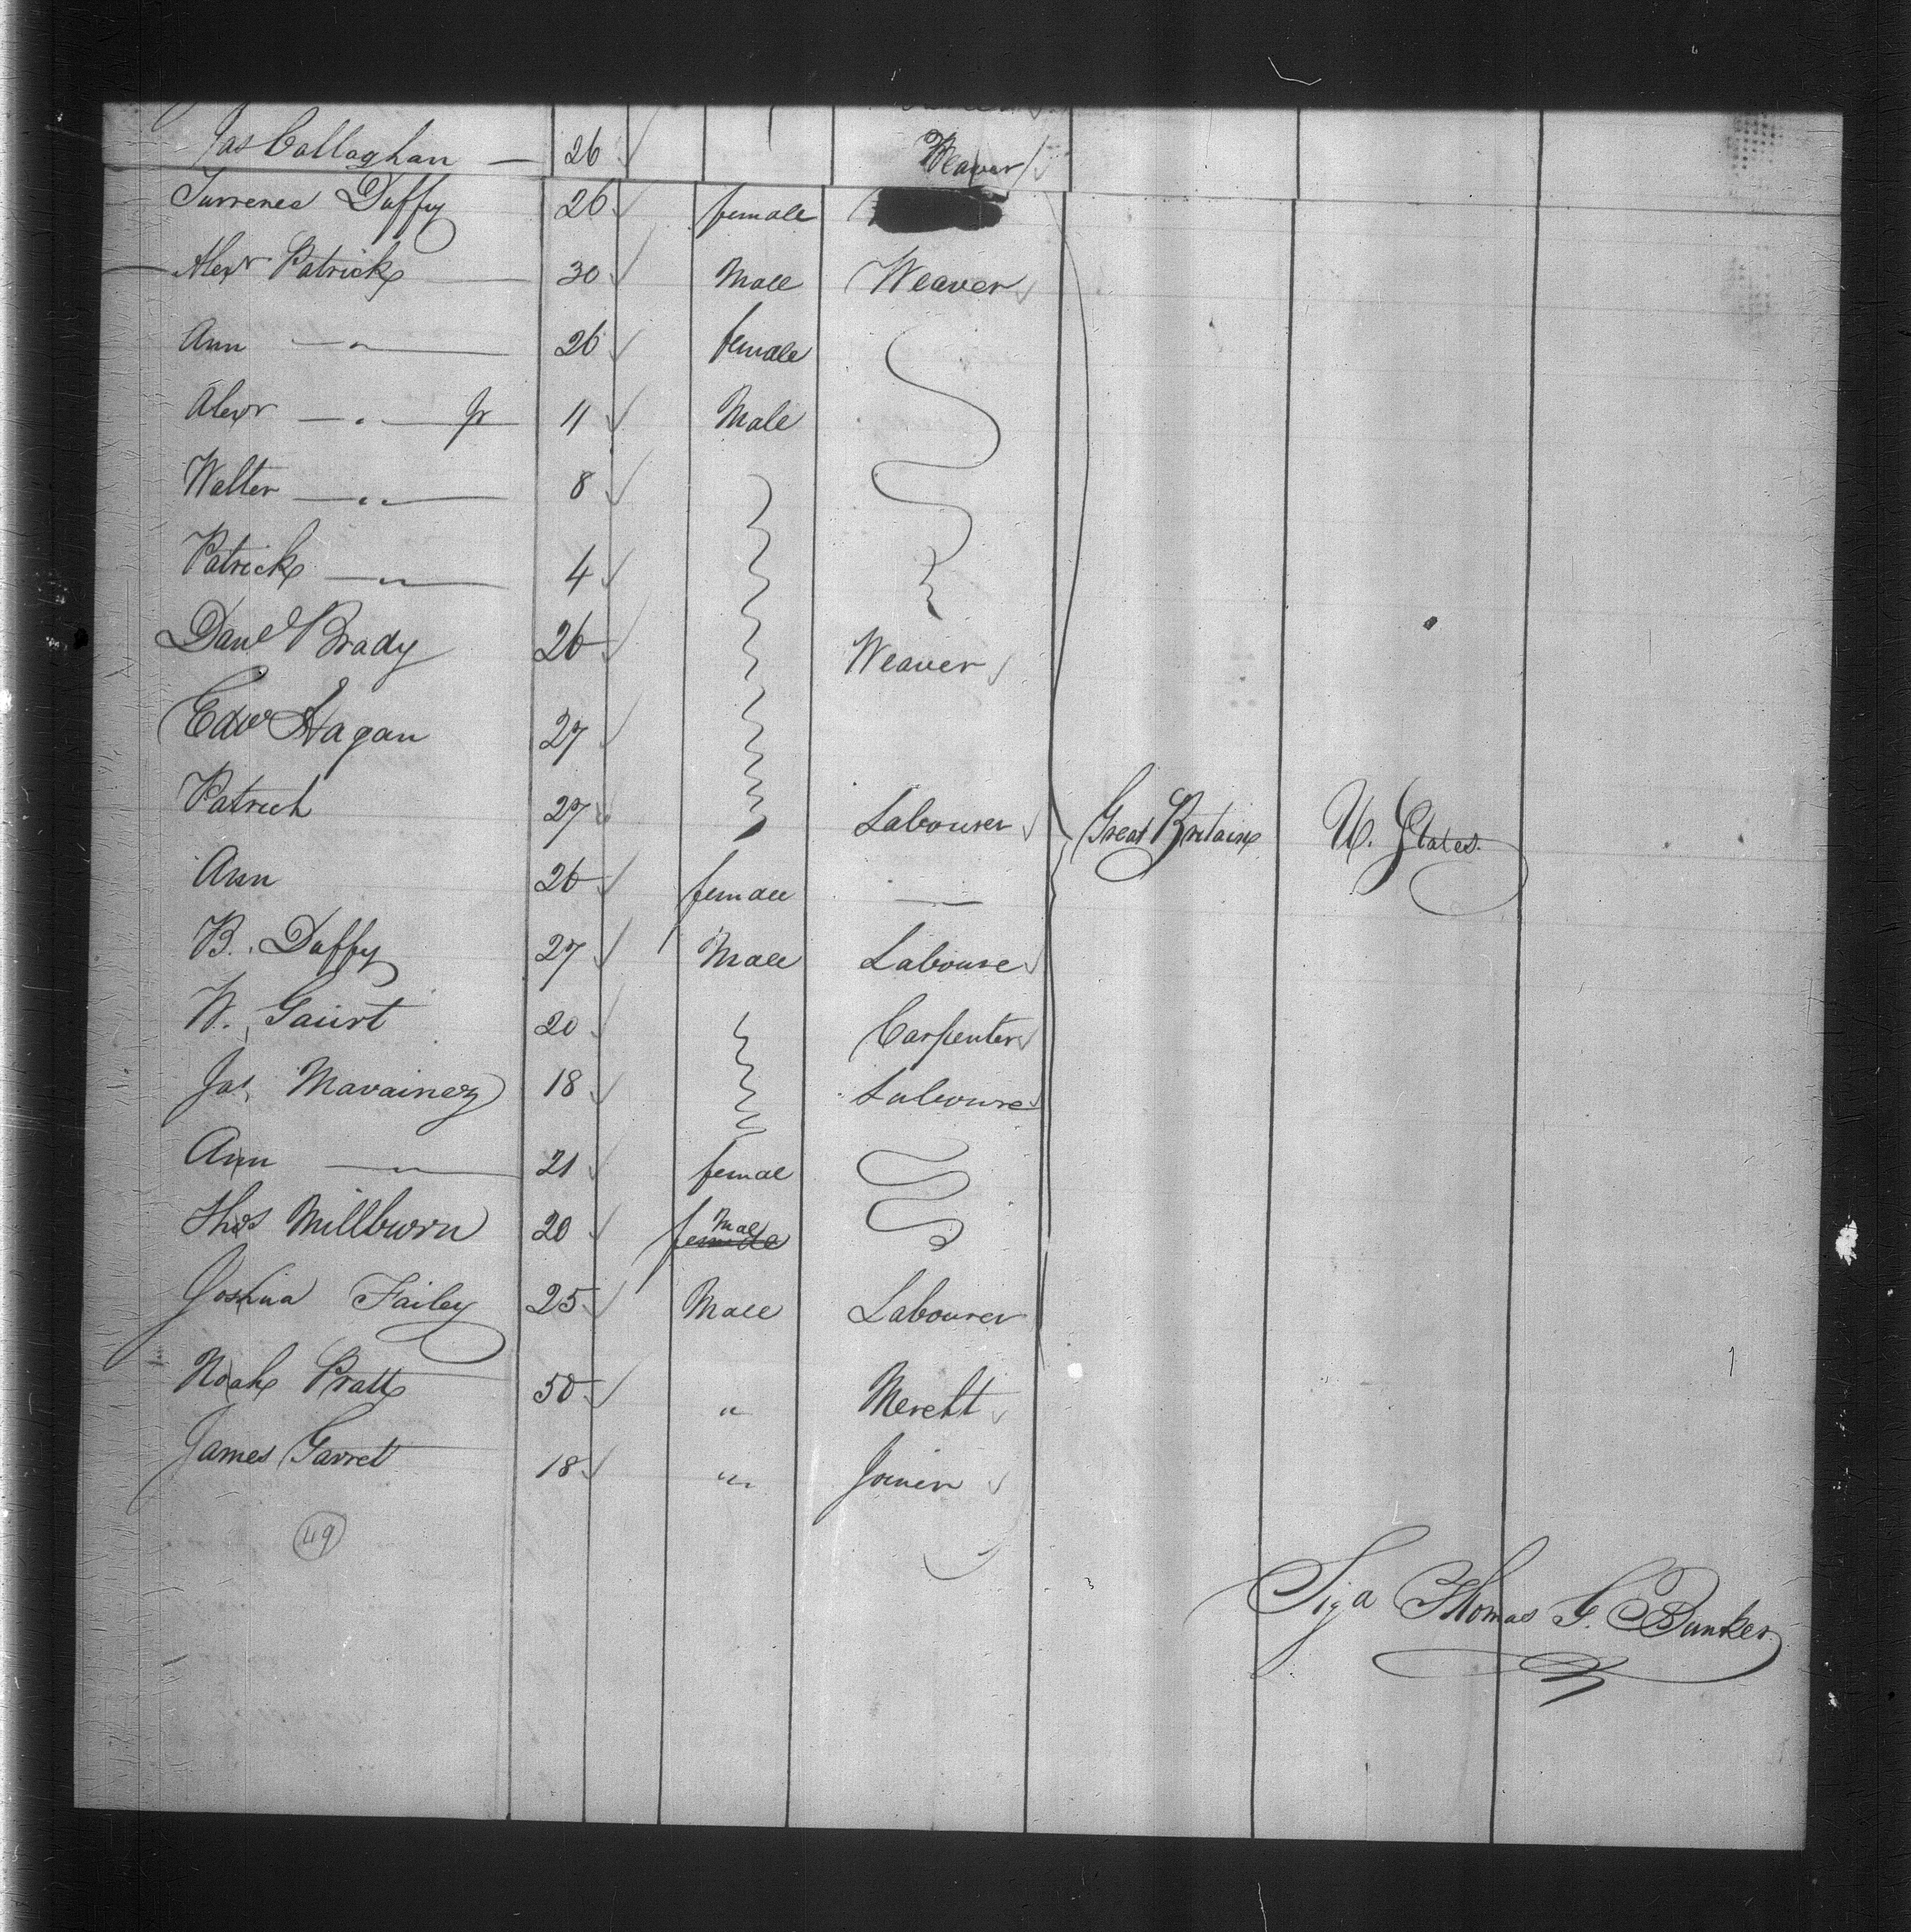 Jas Callaghan — 26 Weaver
Duffy 26 female
Alexr Patrick 30 Male Weaver
Ann — " — 26 female
Alexr — " — Jr 11 Male
Walter — " — 8
Patrick — " — 4
Danl Brady 26 Weaver
Edw Hagan 27
Patrick 27 Labourer Great Britain U. States
Ann 26 female —
B. Duffy 27 Male Laboure
W. 20 Carpenter
Jas. 18 Laboure
Ann — " — 21 femal
Thos Millburn 20 female Mal
Joshua Failey 25 Male Labourer
Noah Pratt 50 " Mercht
James Garret 18 " Joiner
49
Thomas G. Bunker